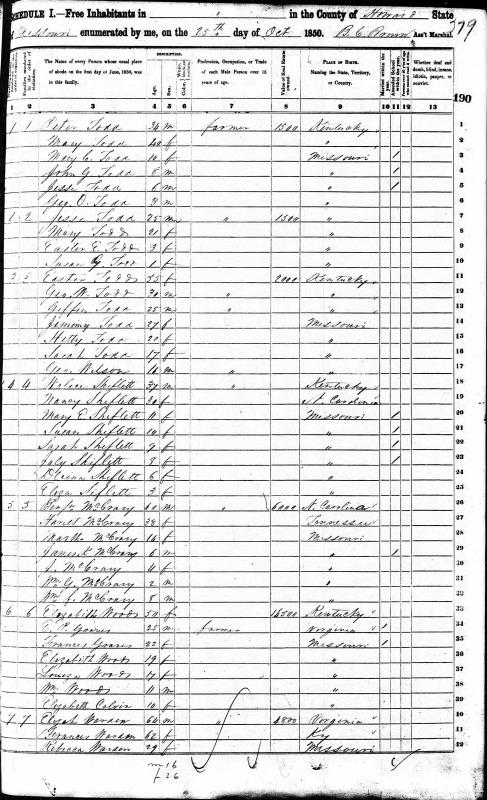 SCHEDULE I.—Free Inhabitants in in the County of Howard State
Missouri enumerated by me, on the 25th day of Oct 1850. Ass't Marshal. 79
DESCRIPTION.
The Name of every Person whose usual place of abode on the first day of June, 1850, was in this family.
Age. Sex.
Profession, Occupation, or Trade of each Male Person over 15 years of age.
Value of Real Estate owned.
PLACE OF BIRTH. Naming the State, Territory, or Country.
Whether deaf and dumb, blind, insane, idiotic, pauper, or convict.
1 2 3 4 5 6 7 8 9 10 11 12 13
190
1 1 Peter Todd 34 m farmer 1500 Kentucky 1
Mary Todd 20 f " 2
Mary C. Todd 10 f Missouri / 3
John G. Todd 8 m " / 4
Jesse Todd 6 m " / 5
Geo. O. Todd 2 m " 6
2 Jesse Todd 25 m " 1500 " 7
Mary Todd 21 f " 8
Easter E Todd 3 f " 9
Susan G. Todd 1 f " 10
3 Easter Todd 55 f 2000 Kentucky 11
Geo. W. Todd 30 m " " 12
Giffin Todd 25 m " " 13
Todd 27 f Missouri 14
Hetty Todd 20 f " 15
Sarah Todd 17 f " 16
Geo. Wilson 16 m " " 17
4 4 Shiflett 37 m " Kentucky 18
Nancy Shiflett 30 f N. Carolina 19
Mary E Shiflett 11 f Missouri / 20
Susan Shiflett 10 f " / 21
Sarah Shiflett 9 f " / 22
July Shiflett 8 f " / 23
Shiflett 6 f " 24
Eliza Siflett 3 f " 25
5 5 Benj. McCrary 60 m " 6000 N. Carolina 26
Haret McCrary 38 f Tennessee 27
Martha McCrary 16 f Missouri 28
James K McCrary 6 m " / 29
McCrary 4 f " 30
Wm. G. McCrary 2 m " 31
Wm. J. McCrary 8 m " 32
6 6 Elizabeth Woods 50 f 14500 Kentucky 33
Goares 25 m farmer Virginia / 34
Frances Goares 22 f Missouri / 35
Elizabeth Woods 19 f " 36
Louiza Woods 17 f " 37
Wm Woods 11 m " 38
Elizabeth Calvin 10 f " 39
7 7 Elijah Warden 64 m " 4800 Virginia 40
Frances Warden 62 f Ky 41
Rebecca Warden 29 f Missouri 42
m 16
f 26